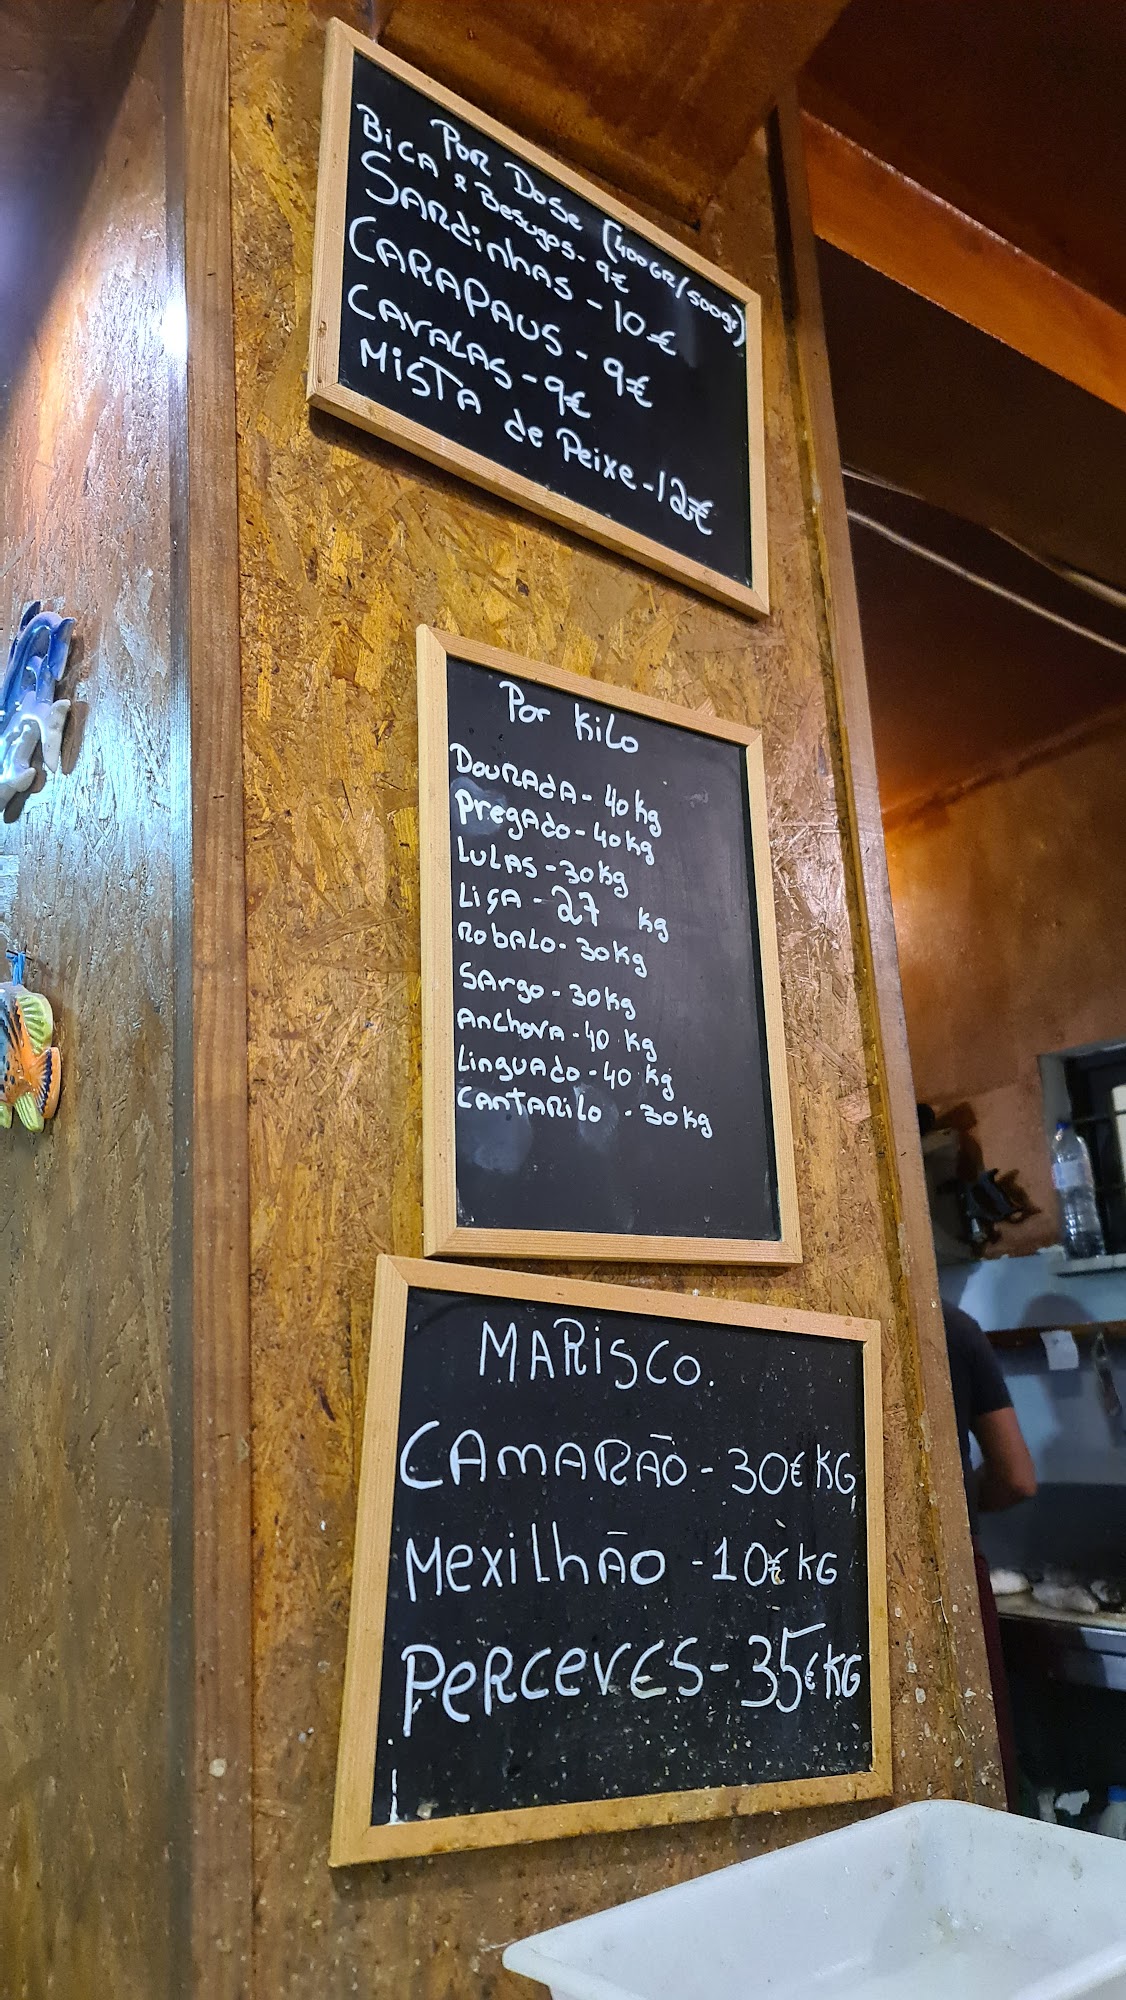 Por Dose (400GR/500gr)
Bica & Besugos - 9€
Sardinhas - 10€
CARAPAUS - 9€
CAVALAS - 9€
MISTA de Peixe - 12€
Por Kilo
DOURADA - 40 kg
Pregado - 40 kg
LULAS - 30 kg
LIÇA - 27 kg
RobALO - 30 kg
SArgo - 30 kg
AnchovA - 40 kg
Linguado - 40 kg
CANTARILO - 30 kg
MARISCO.
CAMARÃO - 30€ KG
Mexilhão - 10€ KG
PERCEVES - 35€ KG